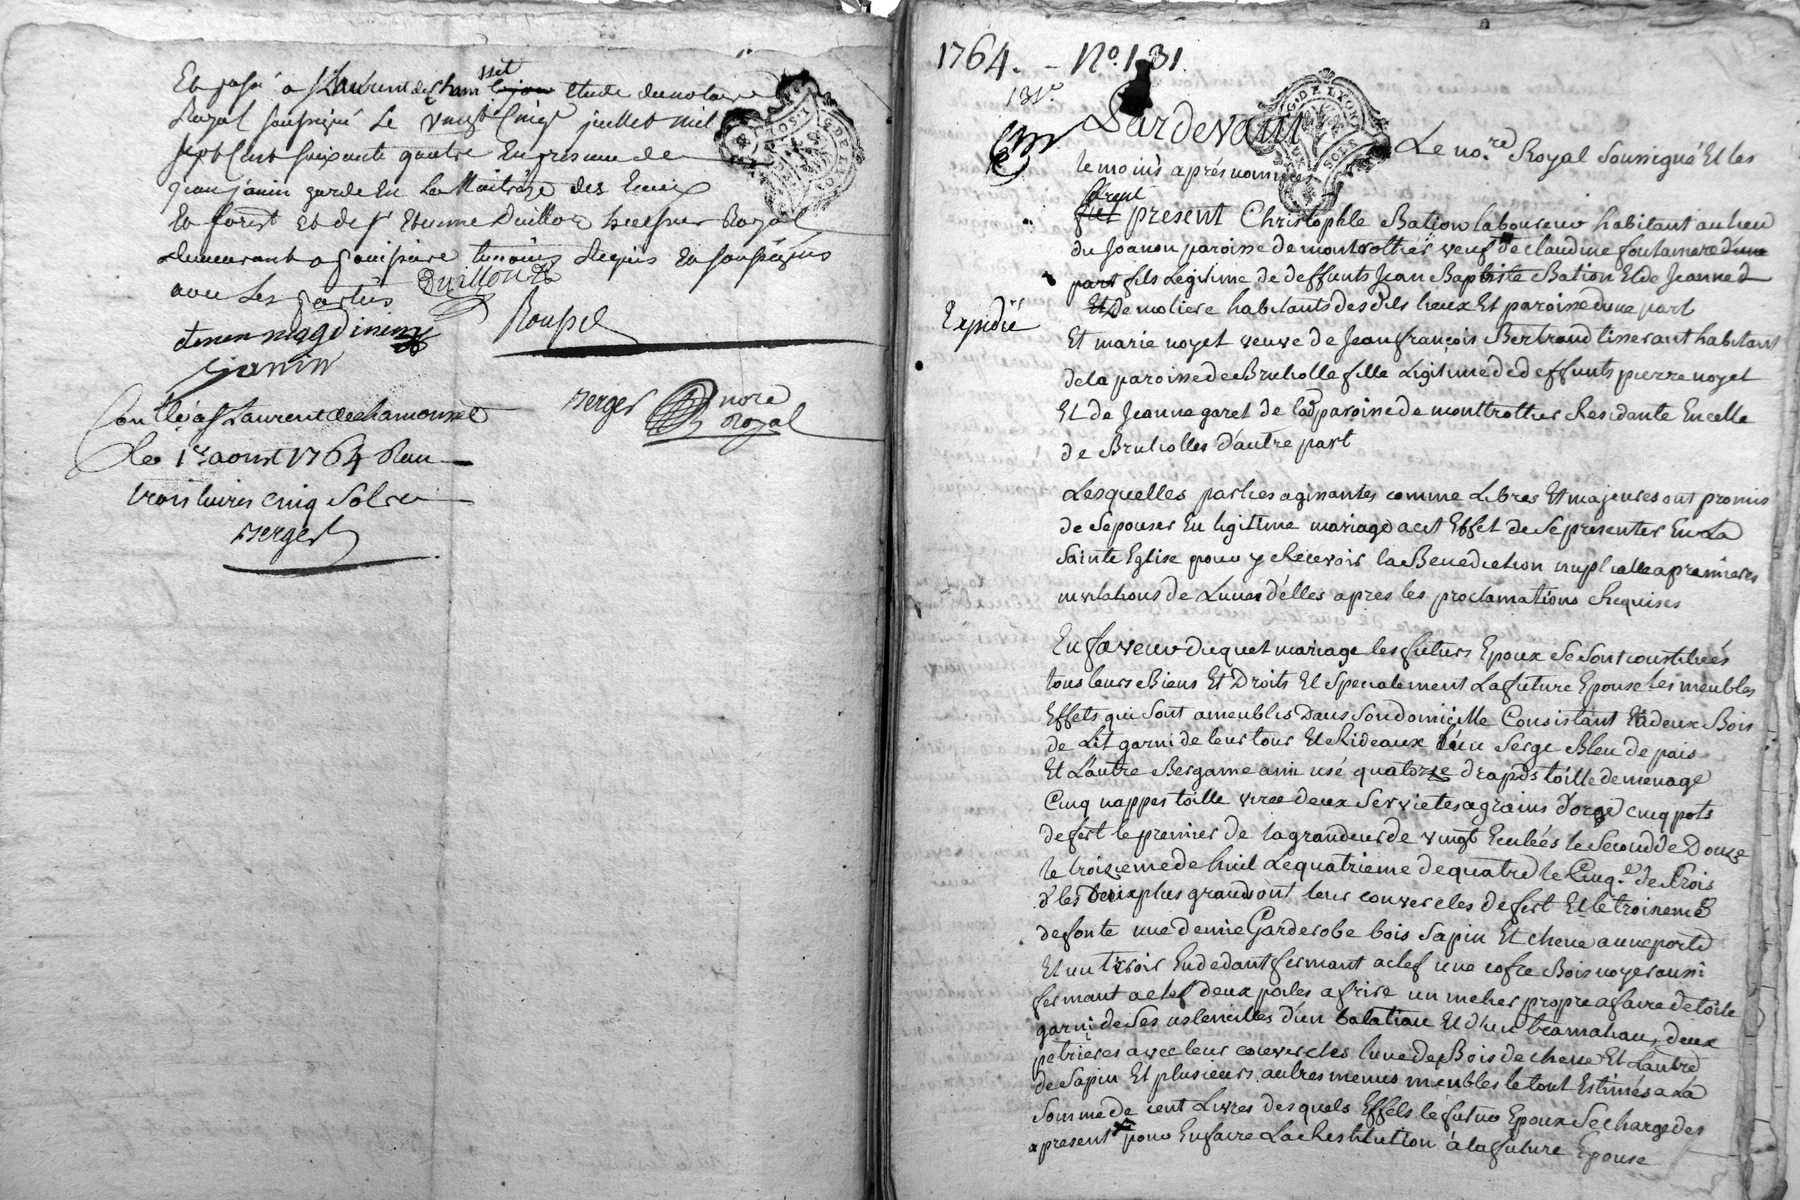 Et passé a St Laurent de Chamousset étude du notaire
Royal soussigné Le vingt Cinq juillet mil
sept Cent soixante quatre En presence de
jean janin garde En La Maitrise des Eaux
Et forest Et de Sr Etienne Duillon huissier Royal
demeurant a temoins Requis Et soussignés
avec Les parties Duillon
Roussel
janin
Berger nore
Royal
Con.llé a St Laurent de chamousset
Le 1er aoust 1764 Reçu
trois livres cinq sols
Berger
1764. - No. 131.
131e
Pardevant Le no.re Royal soussigné Et les
temoins aprés nommés
furent
present Christophle Bation laboureur habitant au lieu
du Joanon paroisse de montrottier veuf de claudine fontanare d'une
part fils Legitime de deffunts Jean Baptiste Bation Et de Jeanne
De moliere habitants desdits lieux Et paroisse d'une part
Expedié
Et marie noyet veuve de Jean françois Bertrand tisserant habitant
de la paroisse de Brulliolle fille Ligitime de deffunts pierre noyet
Et de Jeanne garet de lad. paroisse de monttrottier Residante En celle
de Brulliolles d'autre part
Lesquelles parties agissantes comme Libres Et majeures ont promis
de S'epouser En ligitime mariage a cet Effet de se presenter En La
Sainte Eglise pour y Recevoir la Benediction nuptialle a premieres
invitations de L'une d'elles apres les proclamations Requises
En faveur duquel mariage les futurs Epoux se sont constitués
tous leurs Biens Et Droits Et specialement La future Epouse les meubles
Effets qui sont ameublés Dans son domicille Consistant En deux Bois
de Lit garni de leur tour Et Rideaux l'un Serge Bleu de païs
Et L'autre Bergame a mi usé quatorze draps toille de menage
Cinq nappes toille deux Servietes a grains d'orge cinq pots
de fert le premier de la grandeur de vingt Eculées le second de Douze
le troizieme de huit Le quatrieme de quatre le Cinq.e de trois
les Deux plus grands ont leur couvercles de fert Et le troisieme
de fonte une demie Garderobe bois sapin Et chene a une porte
Et un tiroir En dedant fermant a clef une cofre Bois noyer aussi
fermant a clef deux poiles a frire un metier propre a faire de toile
garni de ses ustencilles d'un batatiau Et d'un tramahau, deux
petrieres avec leur couvercles l'une de Bois de chene Et L'autre
de Sapin Et plusieurs autres menus meubles le tout Estimés a La
Somme de cent Livres desquels Effets le futur Epoux se charge des
a present pour En faire La Restitution à la future Epouse